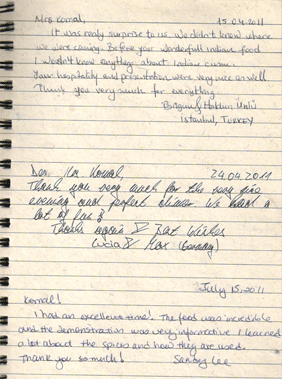 Mrs Komal, 15.04.2011
It was really surprise to us. We didn't know where
we were coming. Before your wonderfull indian food
I wouldn't know anything about Indian cuisine.
Your hospitality and presentation were very nice as well.
Thank you very much for everything
Hakkın Ünlü
İstanbul, TURKEY
Dear Mrs Komal, 24.04.2011
Thank you very much for the very fine
evening and perfect dinner. We had a
lot of fun!
Thanks again & Best Wishes
Lucia & Max (Germany)
July 15, 2011
Komal!
I had an excellent time! The food was incredible
and the demonstration was very informative. I learned
a lot about the spices and how they are used.
Thank you so much! Sandy Lee